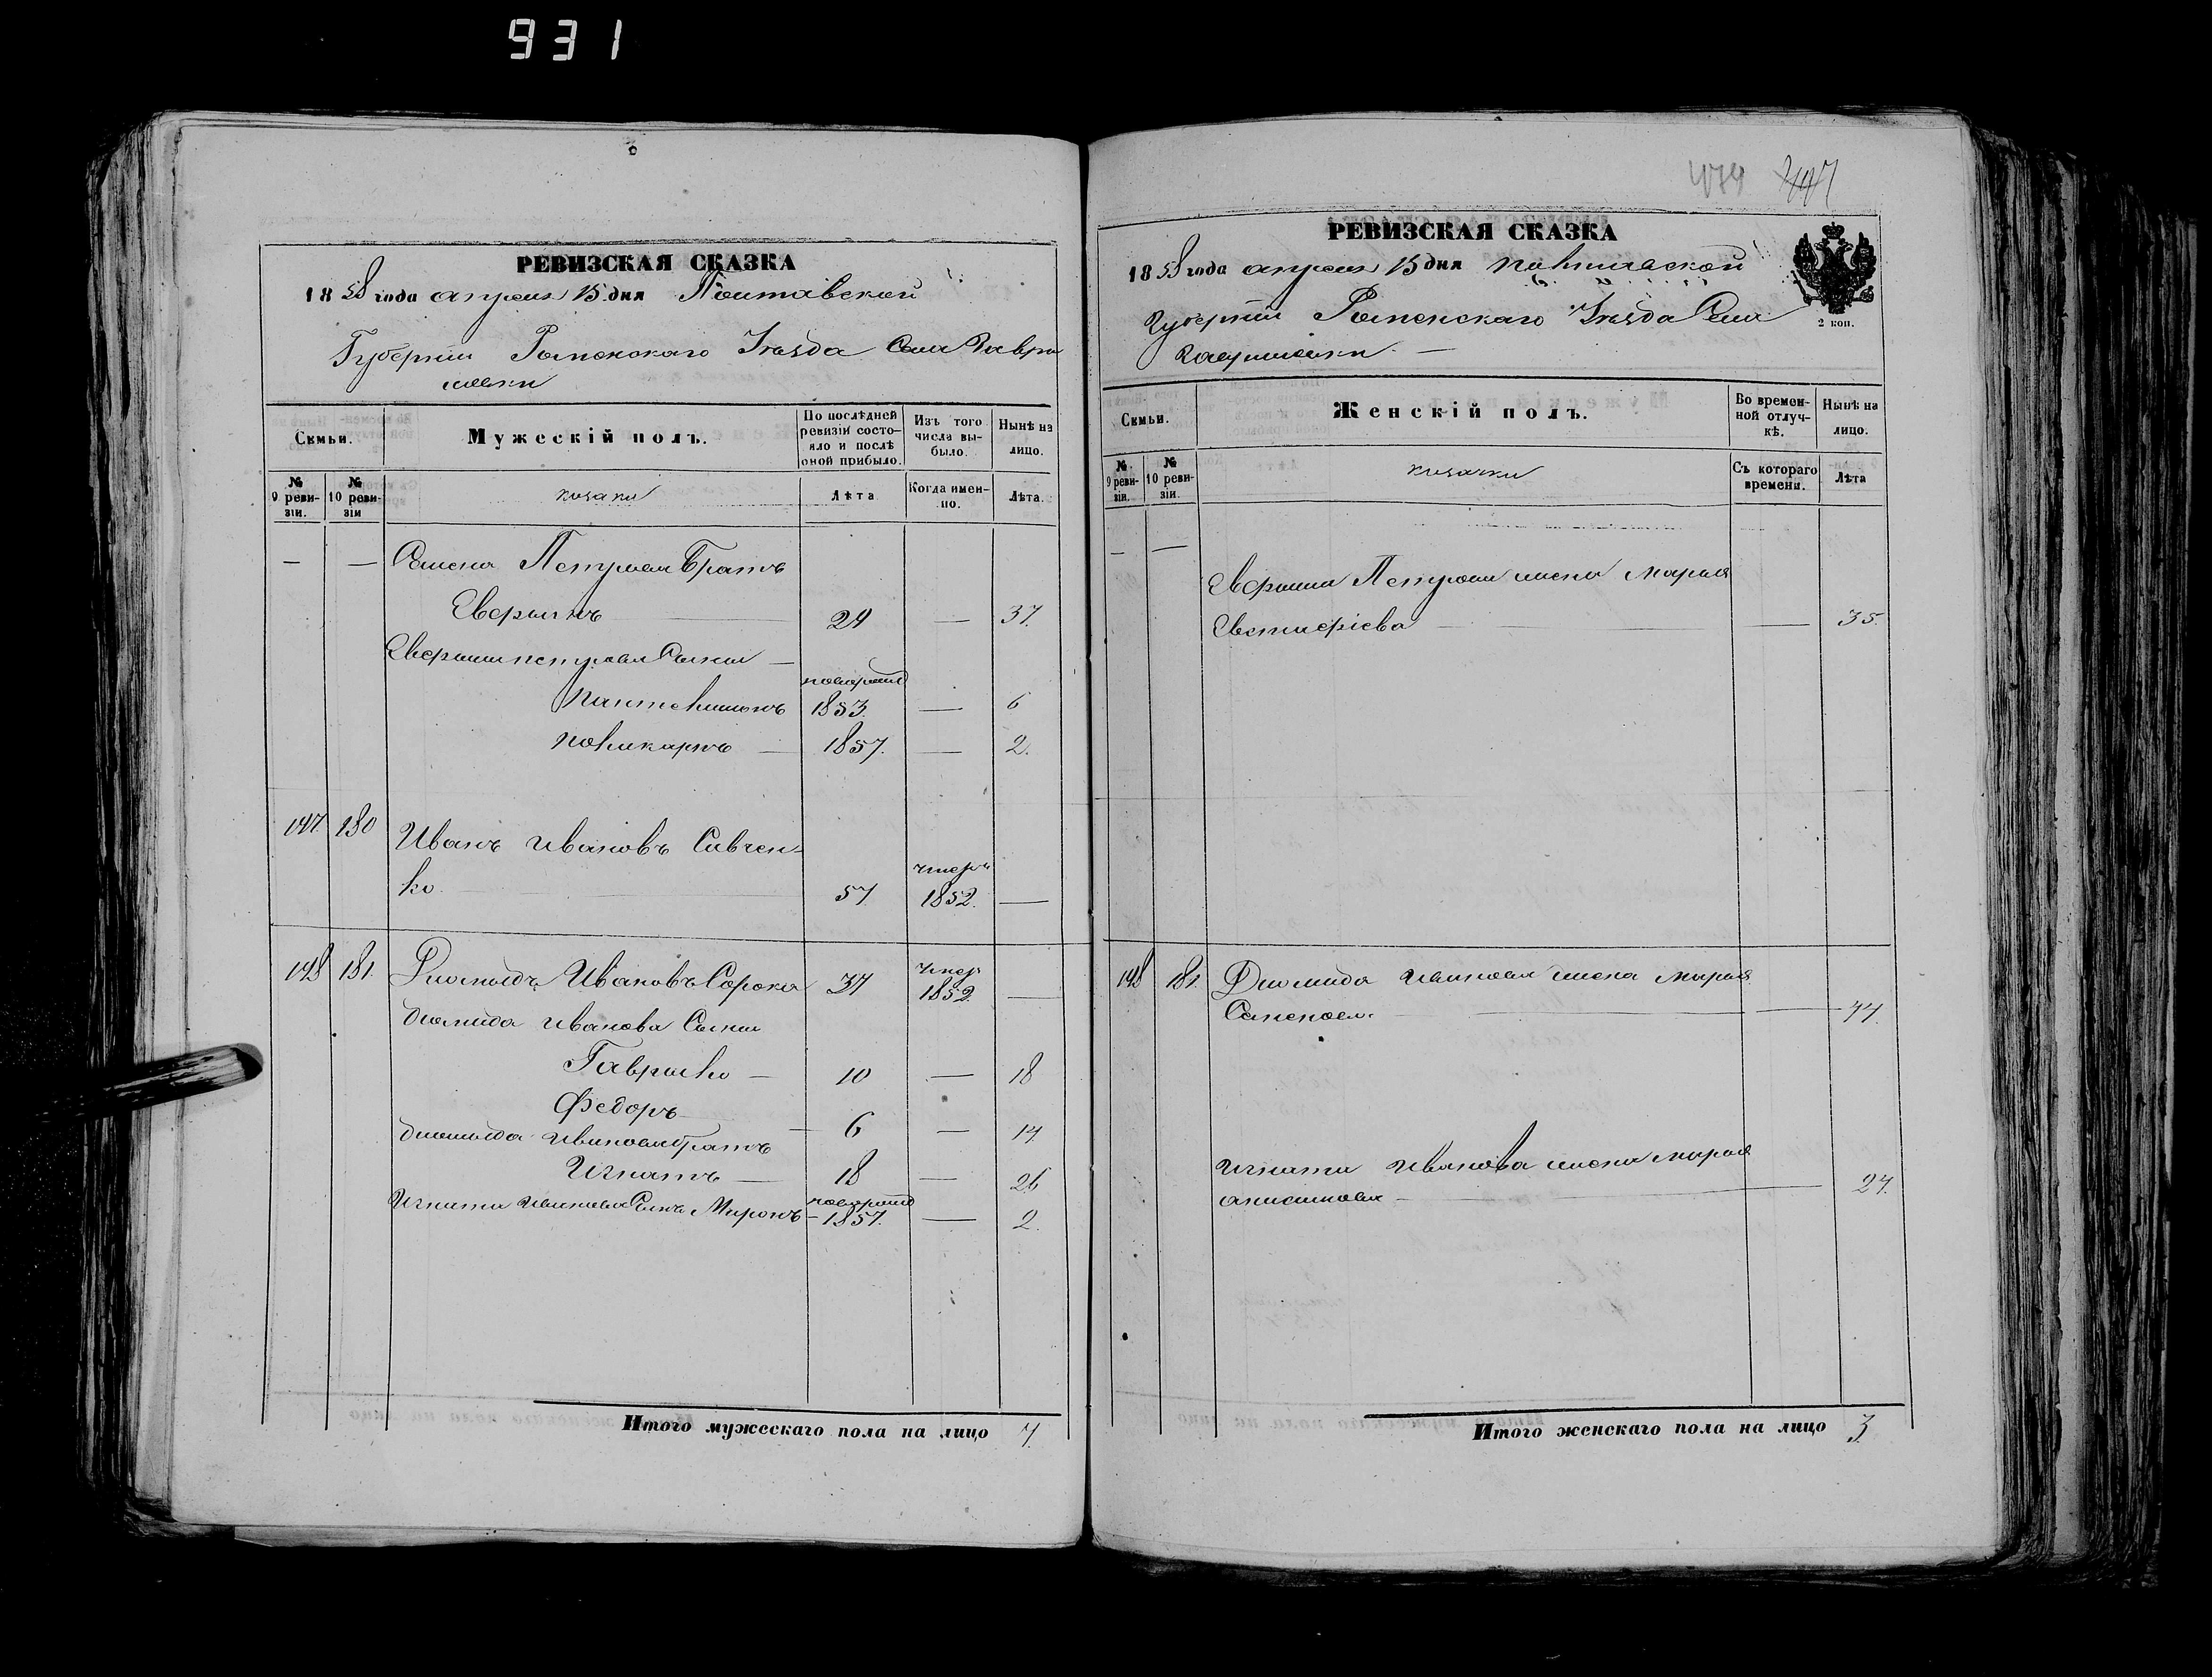 931
РЕВИЗСКАЯ СКАЗКА
1858 года апреля 15 дня Полтавской
Губернии Роменскаго Уезда Села Гаври
Семьи.
Мужескій полъ.
По послѣдней ревизіи состояло и послѣ оной прибыло.
Изъ того числа вы-было.
Нынѣ на лицо.
№ 9 реви-зіи.
№ 10 реви-зіи
козаки
Лѣта
Когда имен-но.
Лѣта.
— — Семена Петрова Братъ
29 — 37.
Сыни —
Пантелимонъ 1853. — 6
Поликарпъ — 1857. — 2.
147 180 Иванъ Ивановъ Савчен-
умеръ
ко 57 1852. —
148 181. Диомидъ Ивановъ Сорока 37 умер 1852. —
Диомида Иванова Сыни
Гаврило — 10 — 18
Федоръ — 6 — 14
Диомида Иванова братъ
Игнатъ — 18 — 26
Игната Иванова Сынъ Миронъ — 1857. — 2.
Итого мужескаго пола на лицо 7.
479 447
РЕВИЗСКАЯ СКАЗКА
1858 года апреля 15 дня Полтавской
2 коп.
Губернии Роменскаго Уезда Села
Семьи.
Женскій полъ.
Во времен-ной отлуч-кѣ.
Нынѣ на лицо.
№ 9 реви-зіи.
№ 10 реви-зіи.
козачки
Съ котораго времени.
Лѣта
— — Петрова жена Марья
— — 35.
148 181. Диомида Иванова жена Марья
— — 44.
Игната Иванова жена Марья
— 24.
Итого женскаго пола на лицо 3.